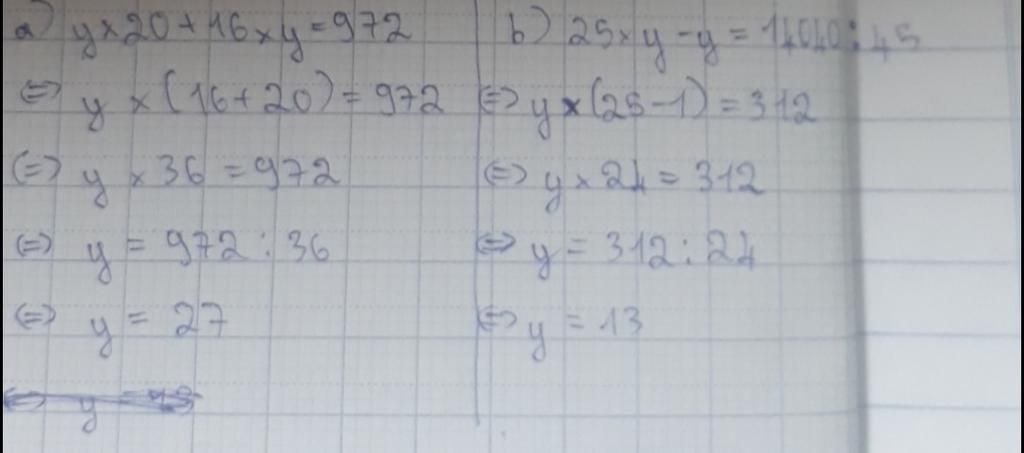 a) y × 20 + 16 × y = 972
⇔ y × (16 + 20) = 972
⇔ y × 36 = 972
⇔ y = 972 : 36
⇔ y = 27
b) 25 × y - y = 14040 : 45
⇔ y × (25 - 1) = 312
⇔ y × 24 = 312
⇔ y = 312 : 24
⇔ y = 13